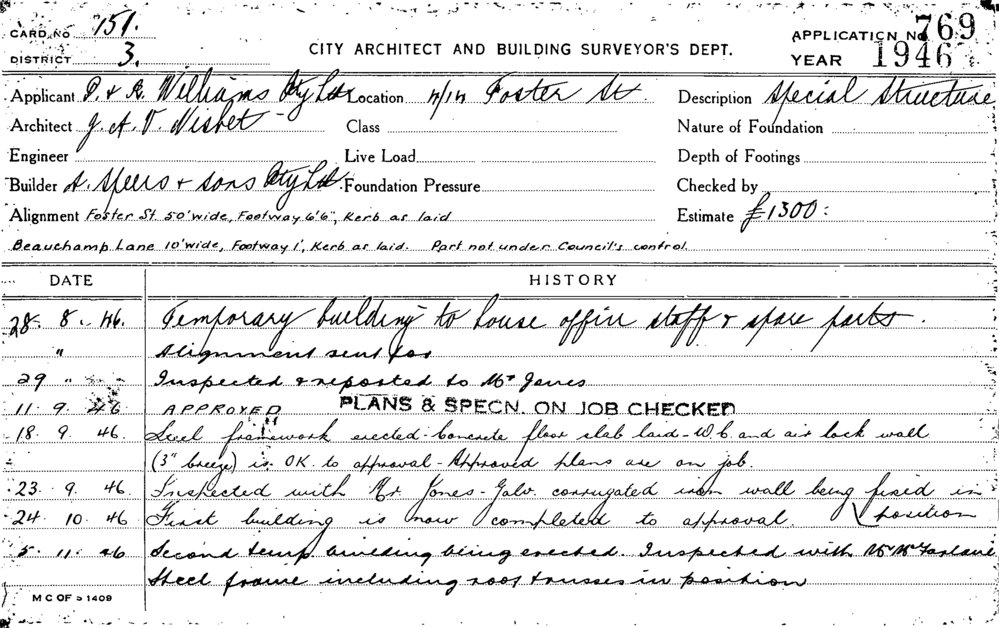 CARD No 151. APPLICATION No 769
CITY ARCHITECT AND BUILDING SURVEYOR'S DEPT.
DISTRICT 3. YEAR 1946
Applicant P. & R. Williams Pty Ltd Location 4/14 Foster St Description Special Structure
Architect J. A. V. Nisbet Class Nature of Foundation
Engineer Live Load Depth of Footings
Builder A. Speers & sons Pty Ltd. Foundation Pressure Checked by
Alignment Foster St. 50' wide, Footway 6'6", Kerb as laid Estimate £1300:
Beauchamp Lane 10' wide, Footway 1', Kerb as laid. Part not under Council's control.
DATE HISTORY
28. 8. 46. Temporary building to house office staff & spare parts.
" Alignment sent for
29 " Inspected & reported to Mr Jones
11. 9. 46 APPROVED PLANS & SPECN. ON JOB CHECKED
18. 9. 46. Steel framework erected - Concrete floor slab laid - W.C. and air lock wall
(3" breeze) is OK. to approval - Approved plans are on job.
23. 9. 46 Inspected with Mr Jones - Galv. corrugated iron wall being fixed in
position
24. 10. 46 First building is now completed to approval.
5. 11. 46 Second temp building being erected. Inspected with Mr McFarlane
Steel frame including roof trusses in position
M C OF S 1409